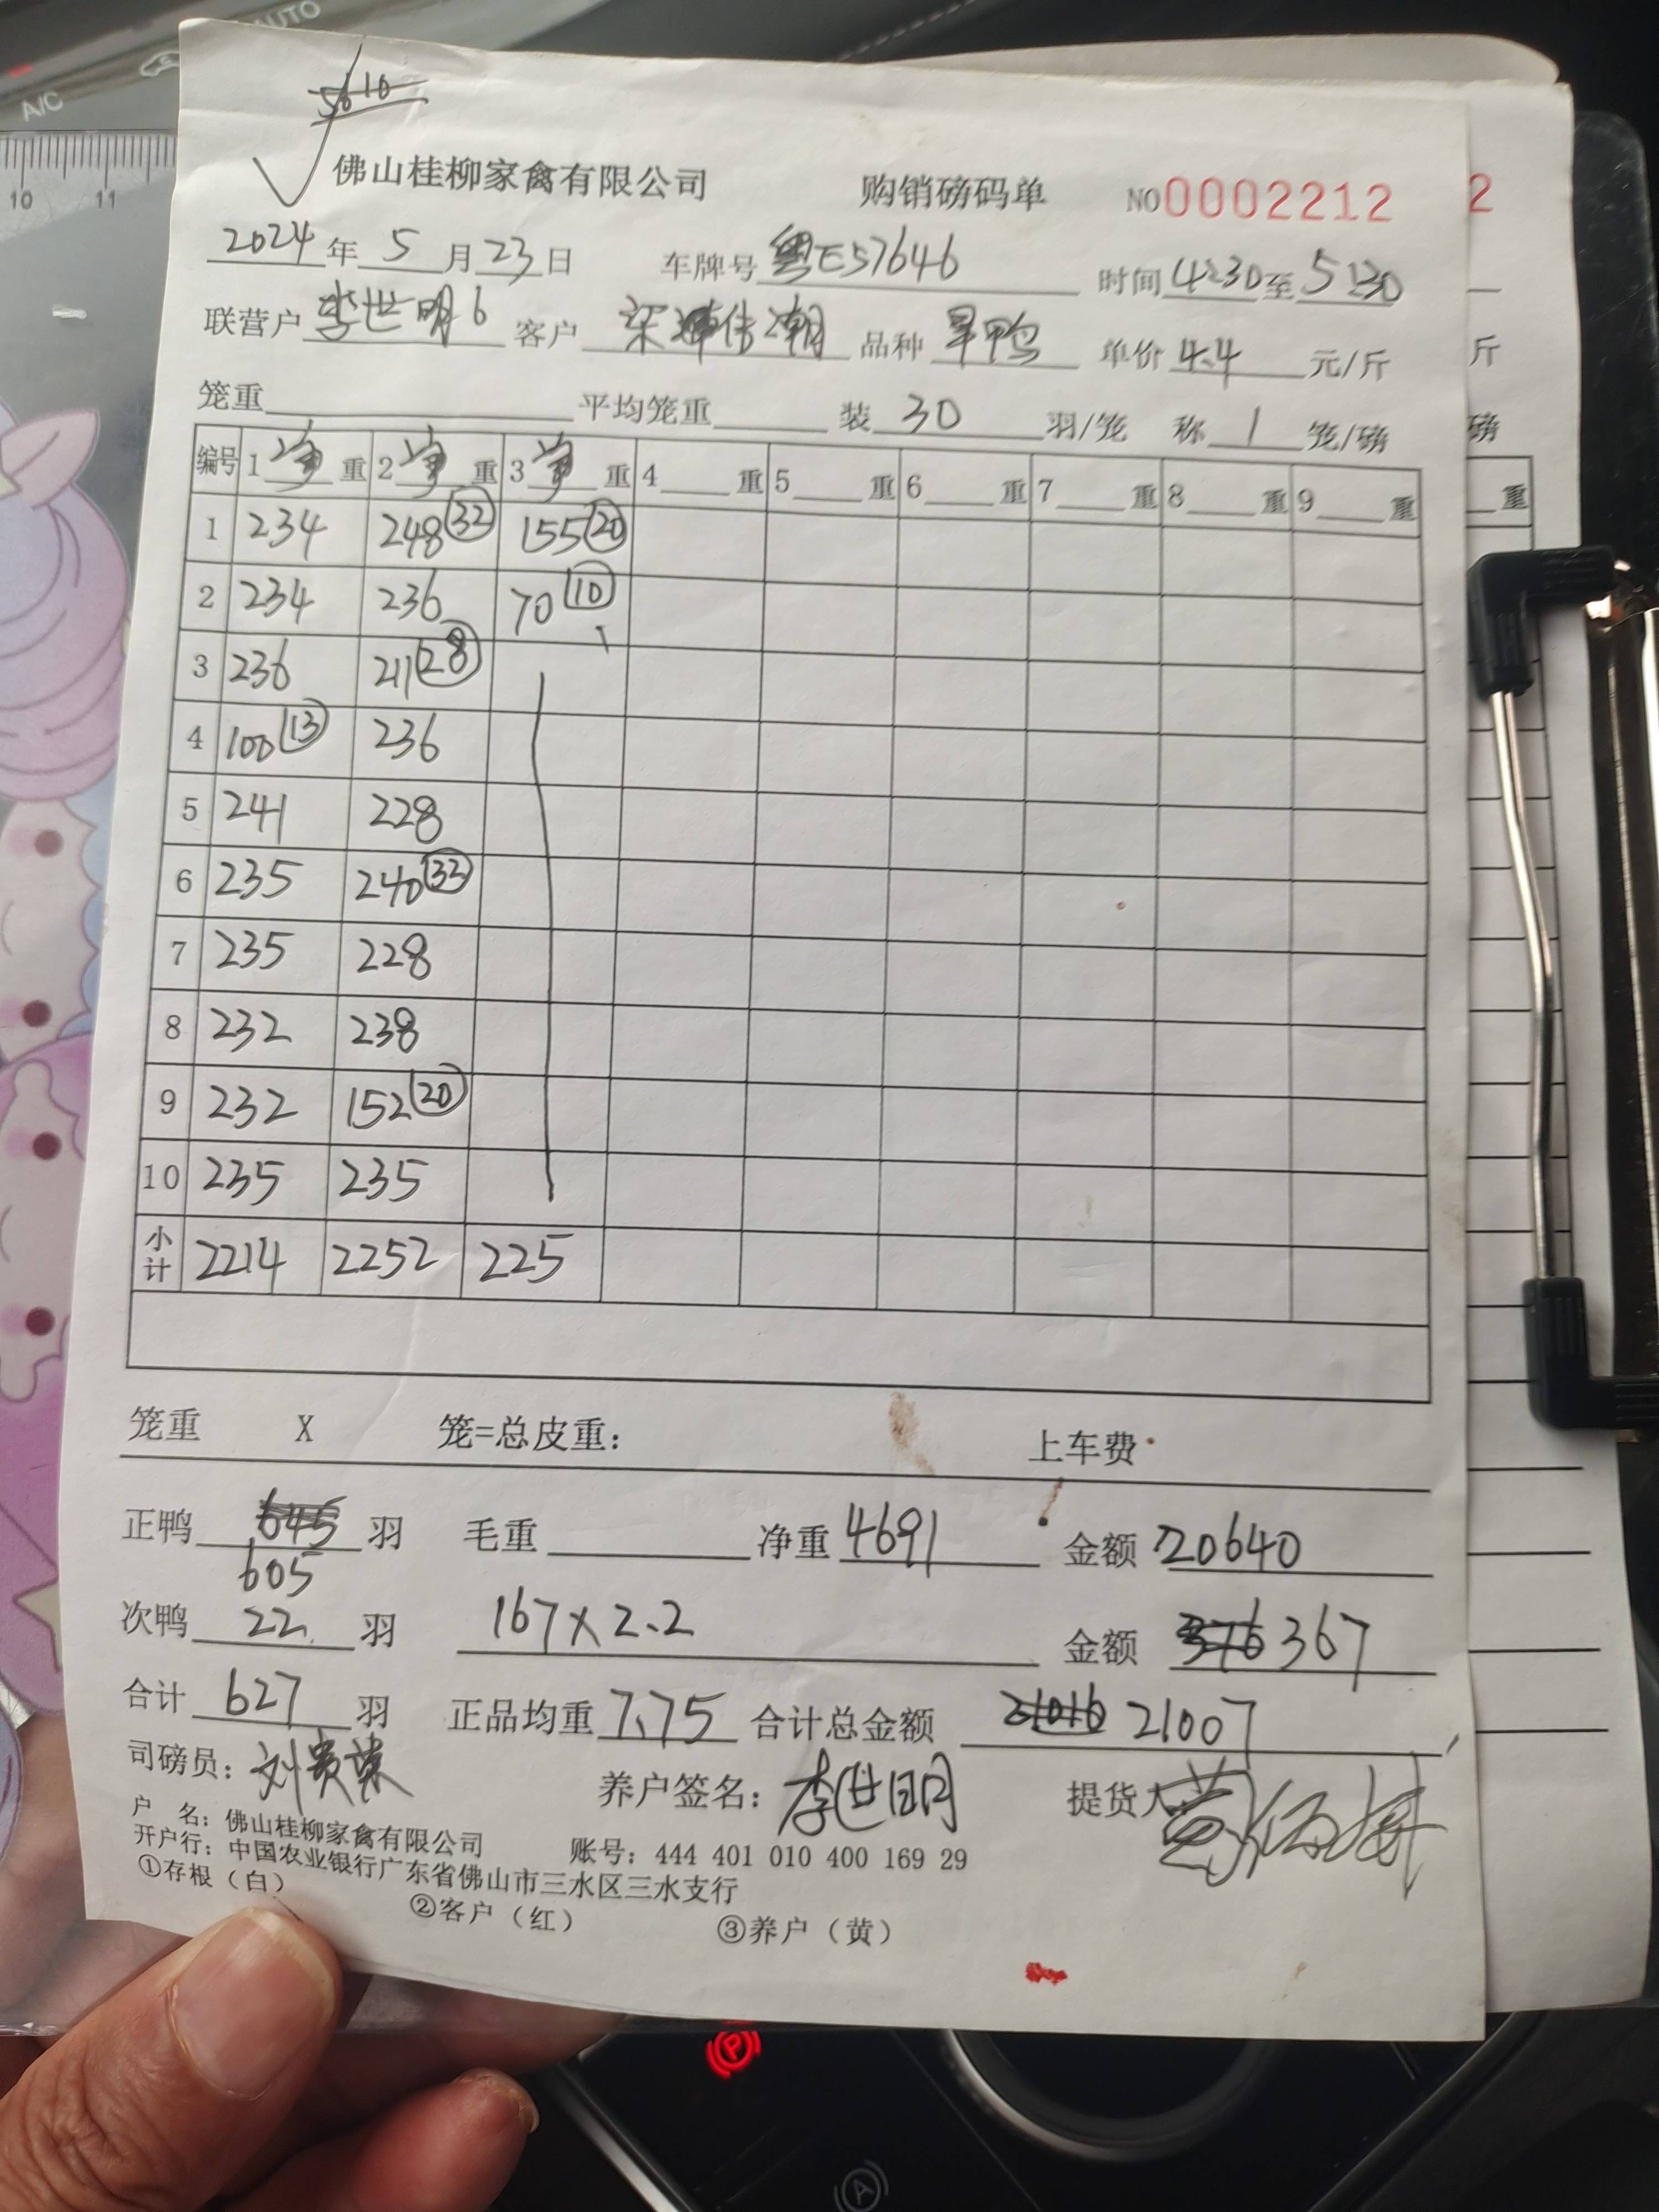 AUTO
A/C
10 11
5610
佛山桂柳家禽有限公司 购销磅码单 NO0002212 2
2024年5月23日 车牌号粤E57646 时间4:30至5:30
联营户李世明6 客户 深 伟潮 品种旱鸭 单价4.4元/斤 斤
笼重 平均笼重 装30羽/笼 称1笼/磅 磅
编号 1净重 2净重 3净重 4重 5重 6重 7重 8重 9重 重
1 234 248㉜ 155⑳
2 234 236 70⑩
3 236 211㉘
4 100⑬ 236
5 241 228
6 235 240㉜
7 235 228
8 232 238
9 232 152⑳
10 235 235
小计 2214 2252 225
笼重 X 笼=总皮重： 上车费
正鸭645羽 毛重 净重4691 金额20640
605
次鸭22羽 167×2.2 金额376 367
合计627羽 正品均重7.75 合计总金额21016 21007
司磅员：刘贵荣 养户签名：李世明 提货人：
户 名：佛山桂柳家禽有限公司 账号：444 401 010 400 169 29
开户行：中国农业银行广东省佛山市三水区三水支行
①存根（白） ②客户（红） ③养户（黄）
P
A